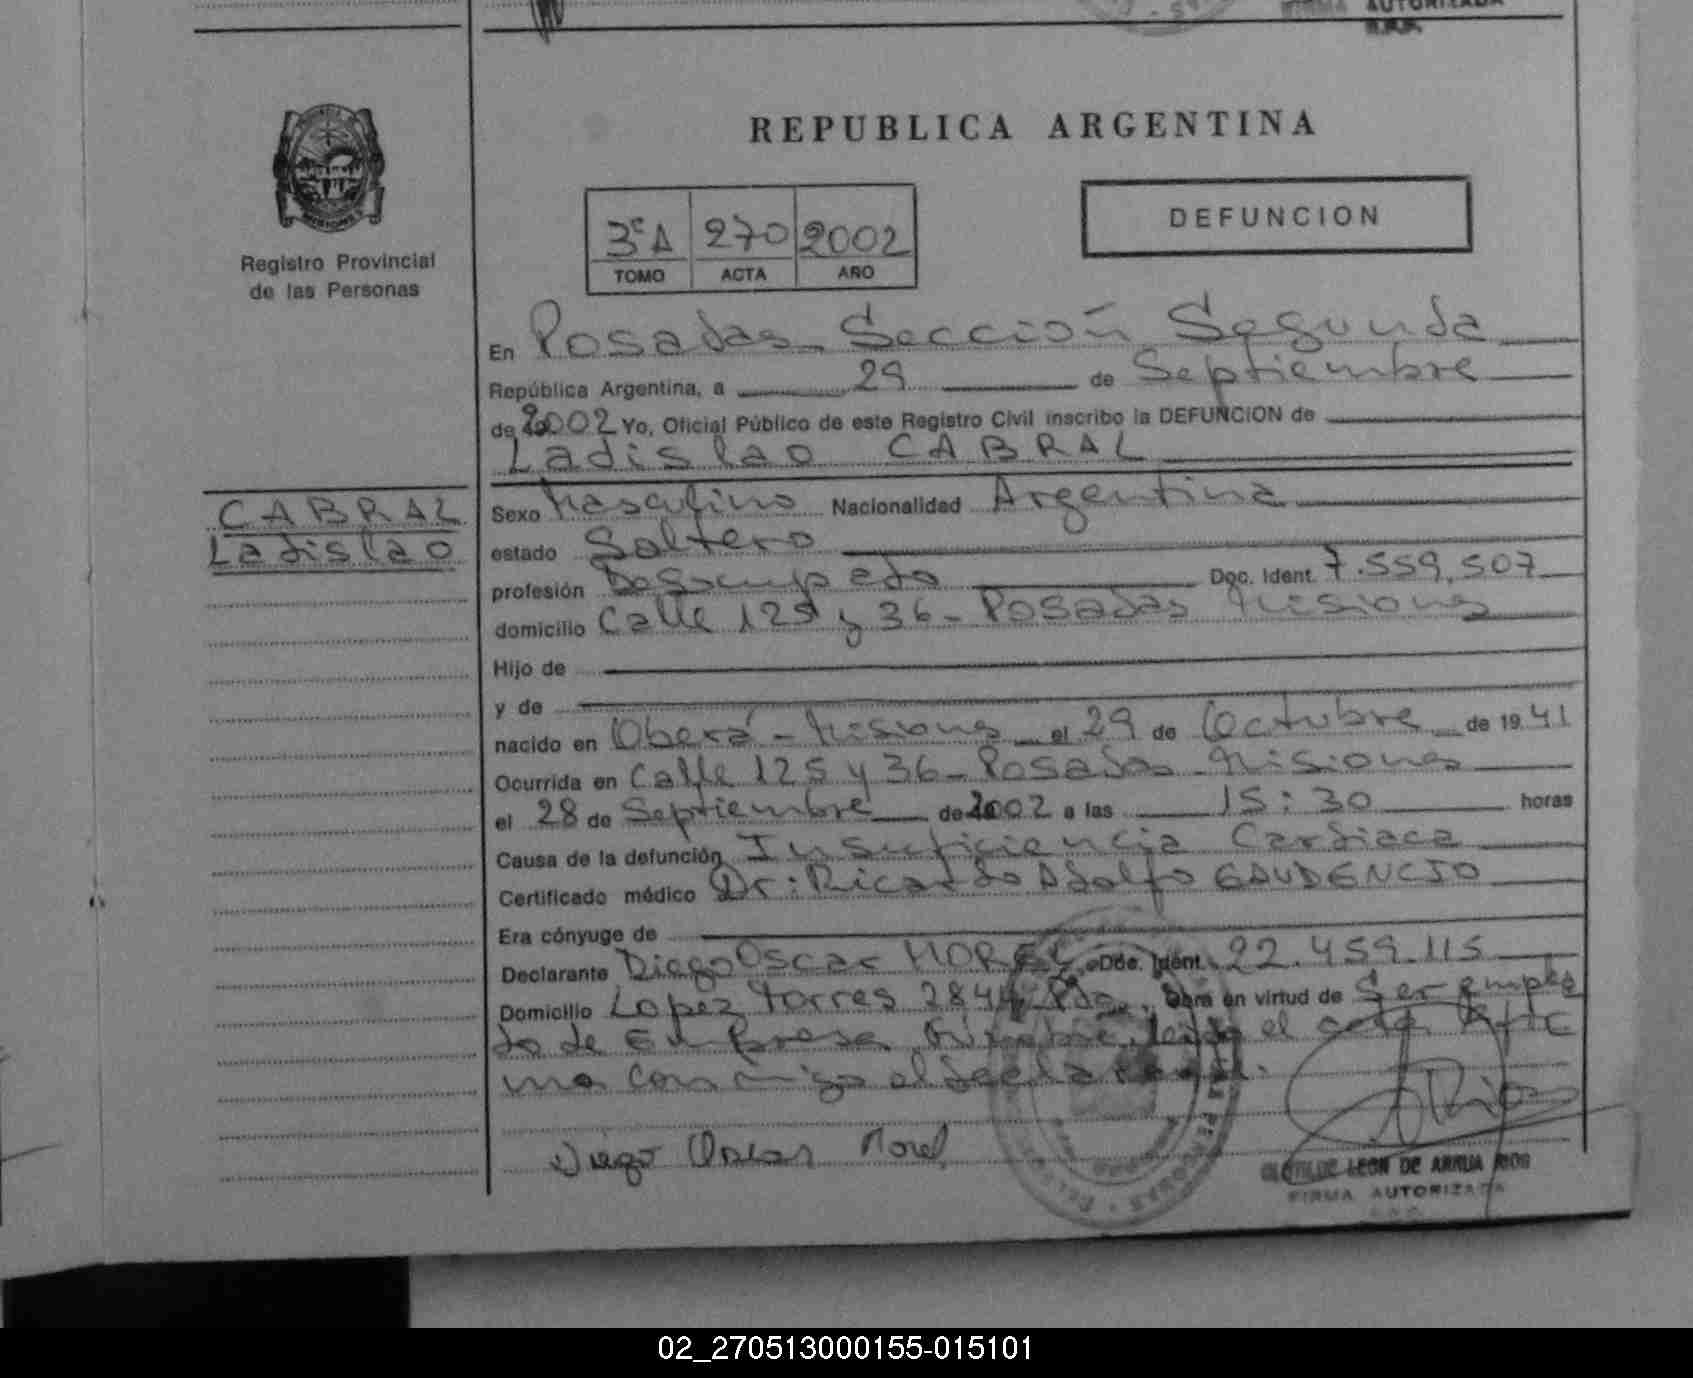 FIRMA AUTORIZADA
REPUBLICA ARGENTINA
Registro Provincial
de las Personas
3ºA 270 2002
TOMO ACTA AÑO
DEFUNCION
En Posadas Sección Segunda
República Argentina, a 29 de Septiembre
de 2002 Yo, Oficial Público de este Registro Civil inscribo la DEFUNCION de
Ladislao CABRAL
CABRAL
Ladislao
Sexo Masculino Nacionalidad Argentina
estado Soltero
profesión Desocupado Doc. Ident. 7.559.507
domicilio Calle 125 y 36 - Posadas Misiones
Hijo de
y de
nacido en Oberá - Misiones el 29 de Octubre de 1941
Ocurrida en Calle 125 y 36 - Posadas - Misiones
el 28 de Septiembre de 2002 a las 15:30 horas
Causa de la defunción Insuficiencia Cardiaca
Certificado médico Dr: Ricardo Adolfo GAUDENCIO
Era cónyuge de
Declarante Diego Oscar MOREL Doc. Ident. 22.459.115
Domicilio Lopez Torres 2844 Pdas. Obra en virtud de Ser emplea
do de Empresa Fúnebre, leída el acta firma
ma conmigo el declarante.
Diego Oscar Morel
CLOTILDE LEON DE ARRUA RIOS
FIRMA AUTORIZADA
02_270513000155-015101